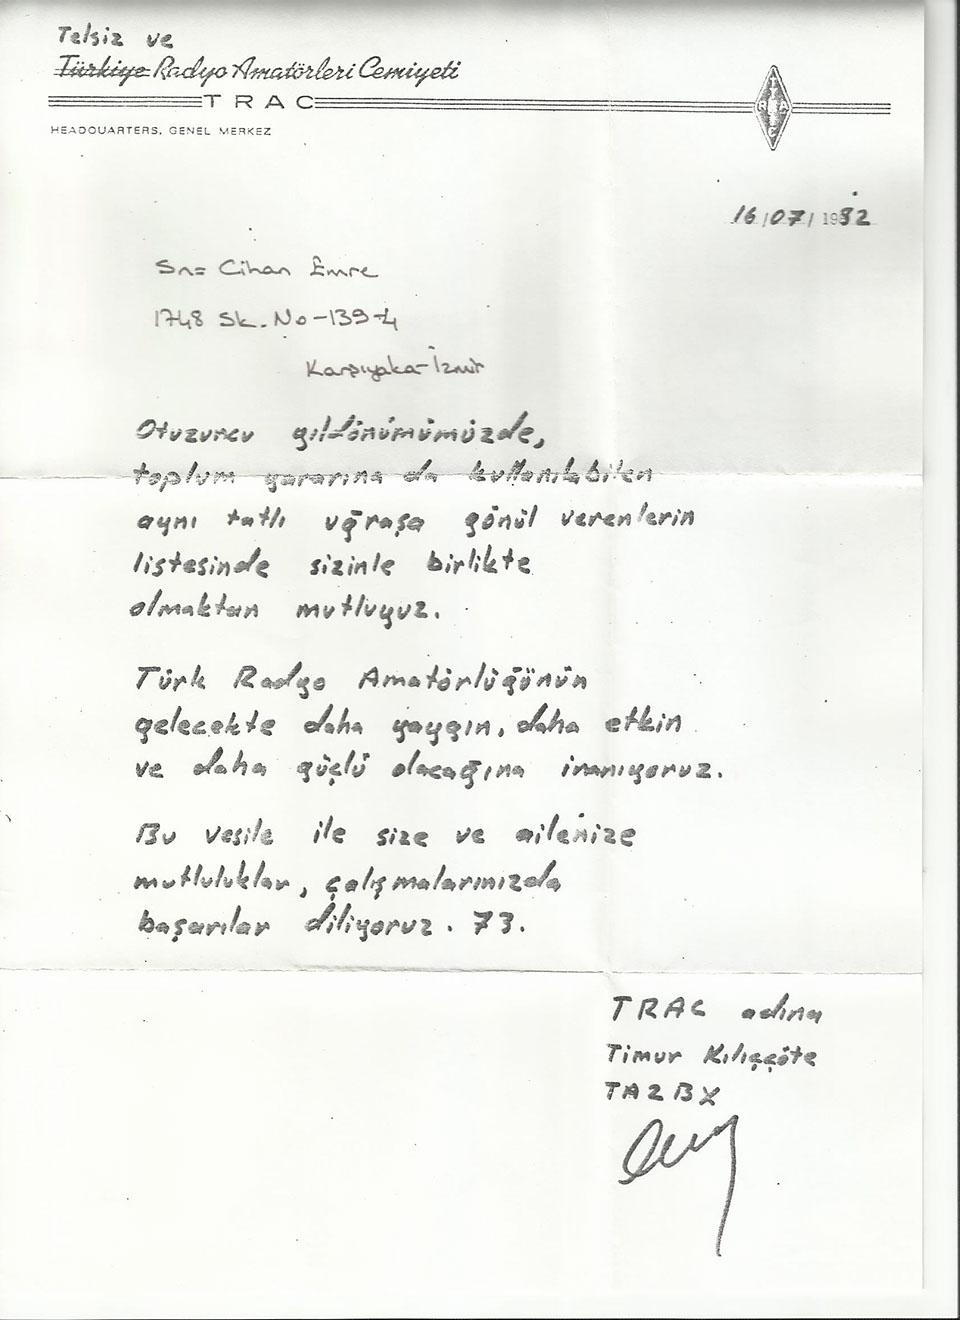 Telsiz ve
Türkiye Radyo Amatörleri Cemiyeti
TRAC
HEADQUARTERS, GENEL MERKEZ
TRAC
16/07/1982
Sn= Cihan Emre
1748 Sk. No-139-4
Karşıyaka-İzmir
Otuzuncu yıldönümümüzde,
toplum yararına da kullanılabilen
aynı tatlı uğraşa gönül verenlerin
listesinde sizinle birlikte
olmaktan mutluyuz.
Türk Radyo Amatörlüğünün
gelecekte daha yaygın, daha etkin
ve daha güçlü olacağına inanıyoruz.
Bu vesile ile size ve ailenize
mutluluklar, çalışmalarınızda
başarılar diliyoruz. 73.
TRAC adına
Timur Kılıççöte
TA2BX